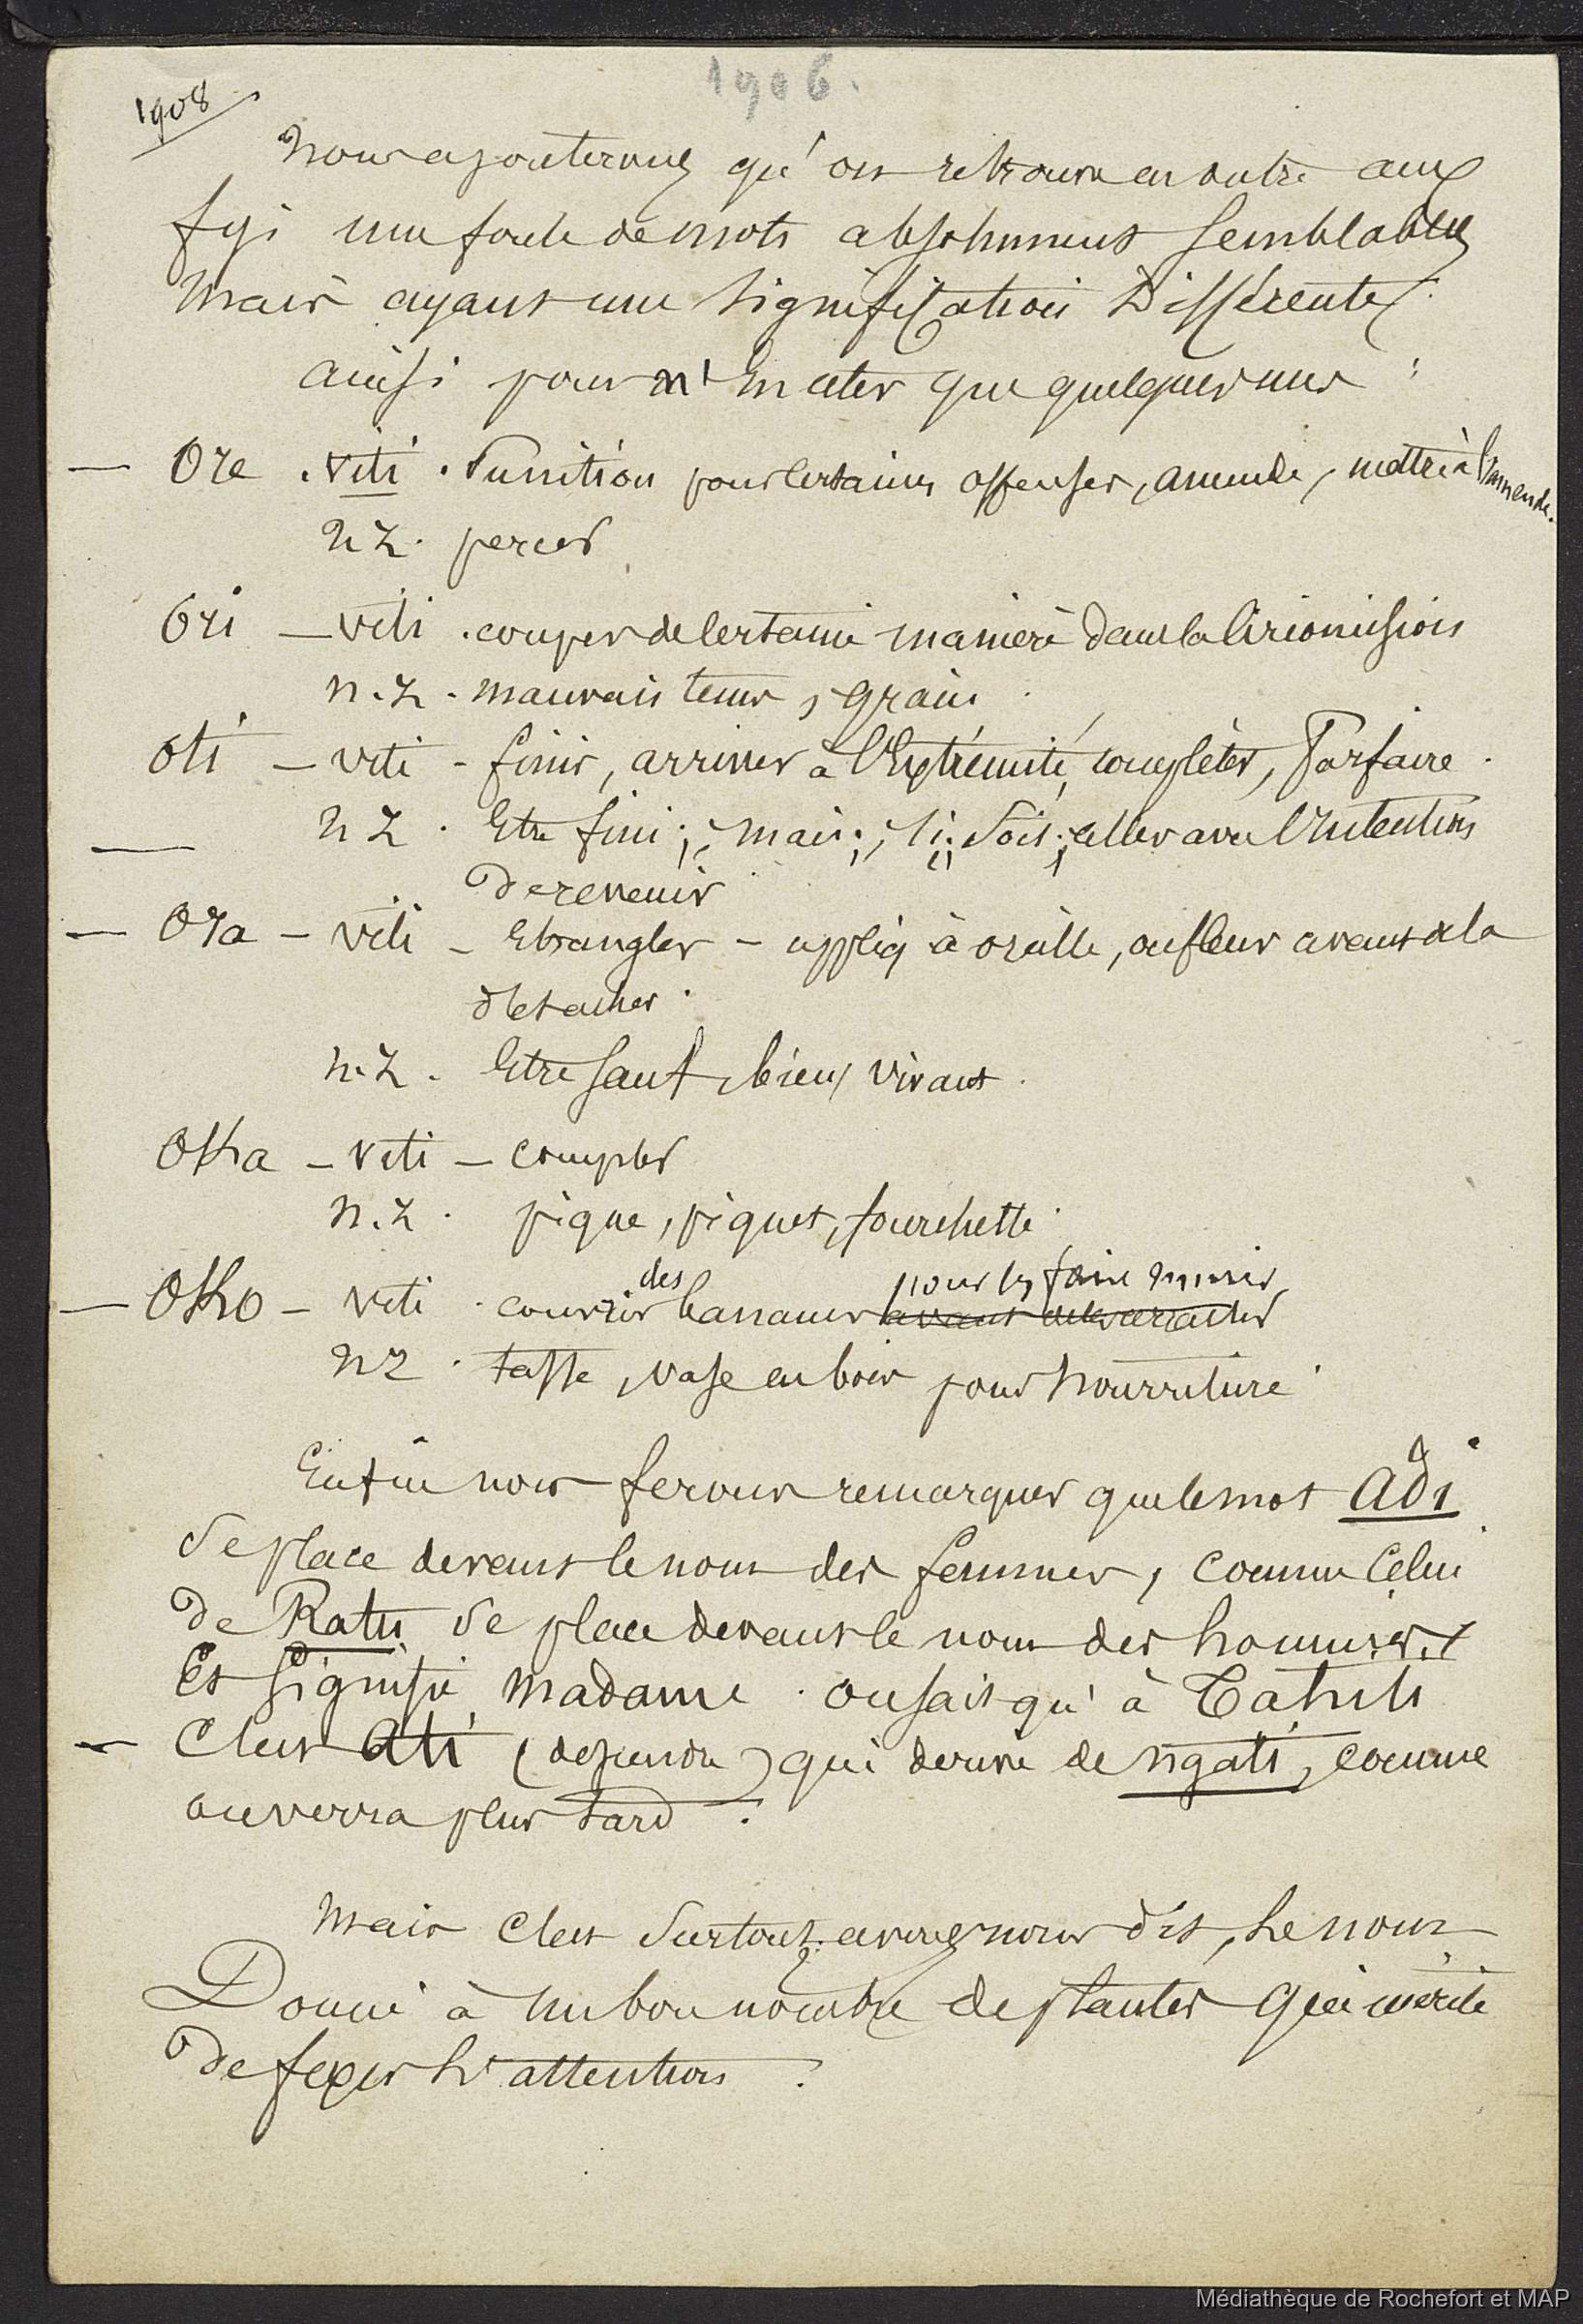 1906.
1908
Nous ajouterons qu'on retrouve en outre aux
fiji une foule de mots absolument semblables
mais ayant une signification Différente
ainsi pour n'en citer que quelques uns :
— Ore . viti . Punition pour certaines offenses, amende, mettre à l'amende.
N Z . percer
Ori — viti . couper de certaine manière dans la Circoncision
n.z . mauvais tems, grain .
oti — viti - finir, arriver à l'Extrémité, complèter, Parfaire .
N Z . Etre fini ; mais ; si ; soit ; aller avec l'intention
— de revenir
— Ora — viti — Etrangler — appliq à oreille, ou fleur avant de la
détacher .
n.z . Etre sauf, bien, vivant .
OKa — viti — compter
n.z . pique, piquet, fourchette .
— OKo — viti . couvrir des bananes pour les faire murir avant de les arracher
N Z . tasse, vase en bois pour nourriture .
Enfin nous ferons remarquer que le mot Adi
se place devant le nom des femmes, comme Celui
de Ratu se place devant le nom des hommes,
Et signifie madame . on sait qu'à Tahiti
— C'est Ati qui derive de ngati, comme
on verra plus tard .
Mais C'est surtout, avons nous dit, le nom
Donné à un bon nombre de plantes qui mérite
de fixer l'attention .
Médiathèque de Rochefort et MAP